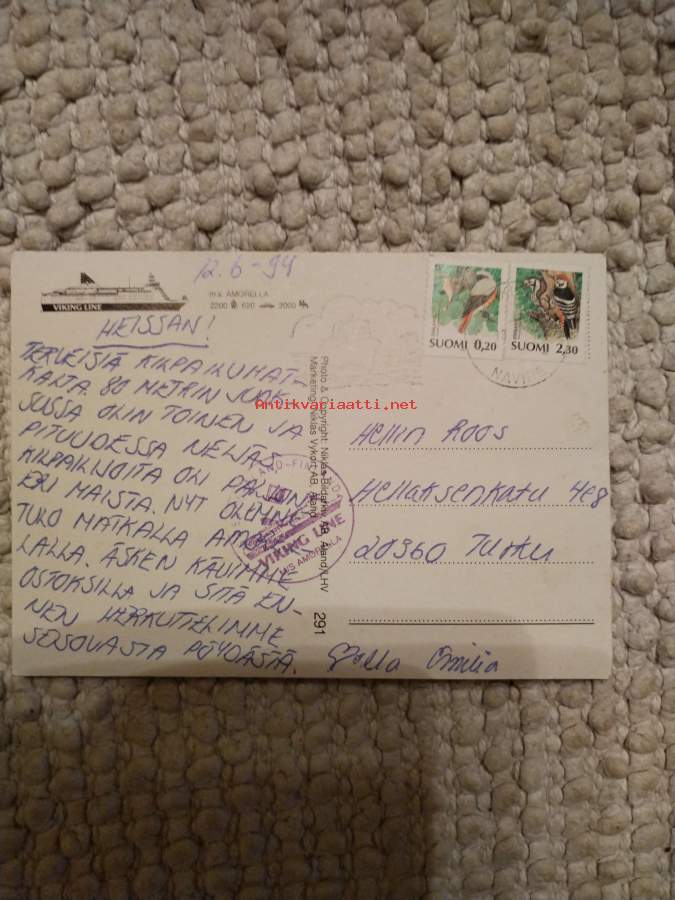 12.6-94
VIKING LINE
m.s. AMORELLA
2200 620 2000
HEISSAN!
TERVEISIÄ KILPAILUMAT-
KALTA. 80 METRIN JUOK-
SUSSA OLIN TOINEN JA
PITUUDESSA NELJÄS.
KILPAILIJOITA OLI PALJON
ERI MAISTA. NYT OLEMME
TULOMATKALLA AMOREL-
LALLA. ÄSKEN KÄVIMME
OSTOKSILLA JA SITÄ EN-
NEN HERKUTTELIMME
SEISOVASTA PÖYDÄSTÄ.
Photo & Copyright: Niklas Bildarkiv AB, Åland/LHV
Marketing: Niklas Vykort AB, Åland
291
VIKING LINE
M/S AMORELLA
SUOMI 0,20
SUOMI 2,30
NAVIRE
Antikvariaatti.net
Hellin Roos
Hellaksenkatu 4 e 8
20360 Turku
Emilia